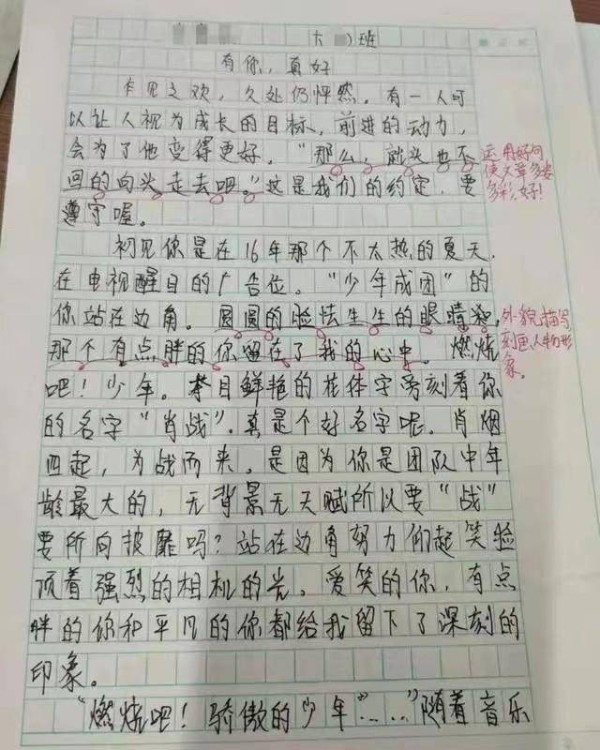 六 班
有你，真好
乍见之欢，久处仍怦然。有一人可
以让人视为成长的目标，前进的动力，
会为了他变得更好。“那么，就头也不
回的向头走去吧。”这是我们的约定，要
遵守喔。
初见你是在16年那个不太热的夏天，
在电视醒目的广告位。“少年成团”的
你站在边角。圆圆的脸怯生生的眼睛，
那个有点胖的你留在了我的心中。燃烧
吧！少年。夺目鲜艳的花体字旁刻着你
的名字“肖战”。真是个好名字呢。肖烟
四起，为战而来。是因为你是团队中年
龄最大的，无背景无天赋所以要“战”
要所向披靡吗？站在边角努力仰起笑脸
顶着强烈的相机的光。爱笑的你，有点
胖的你和平凡的你都给我留下了深刻的
印象。
“燃烧吧！骄傲的少年“……”随着音乐
运用好句
使文章多姿
多彩，好！
外貌描写
刻画人物形
象。